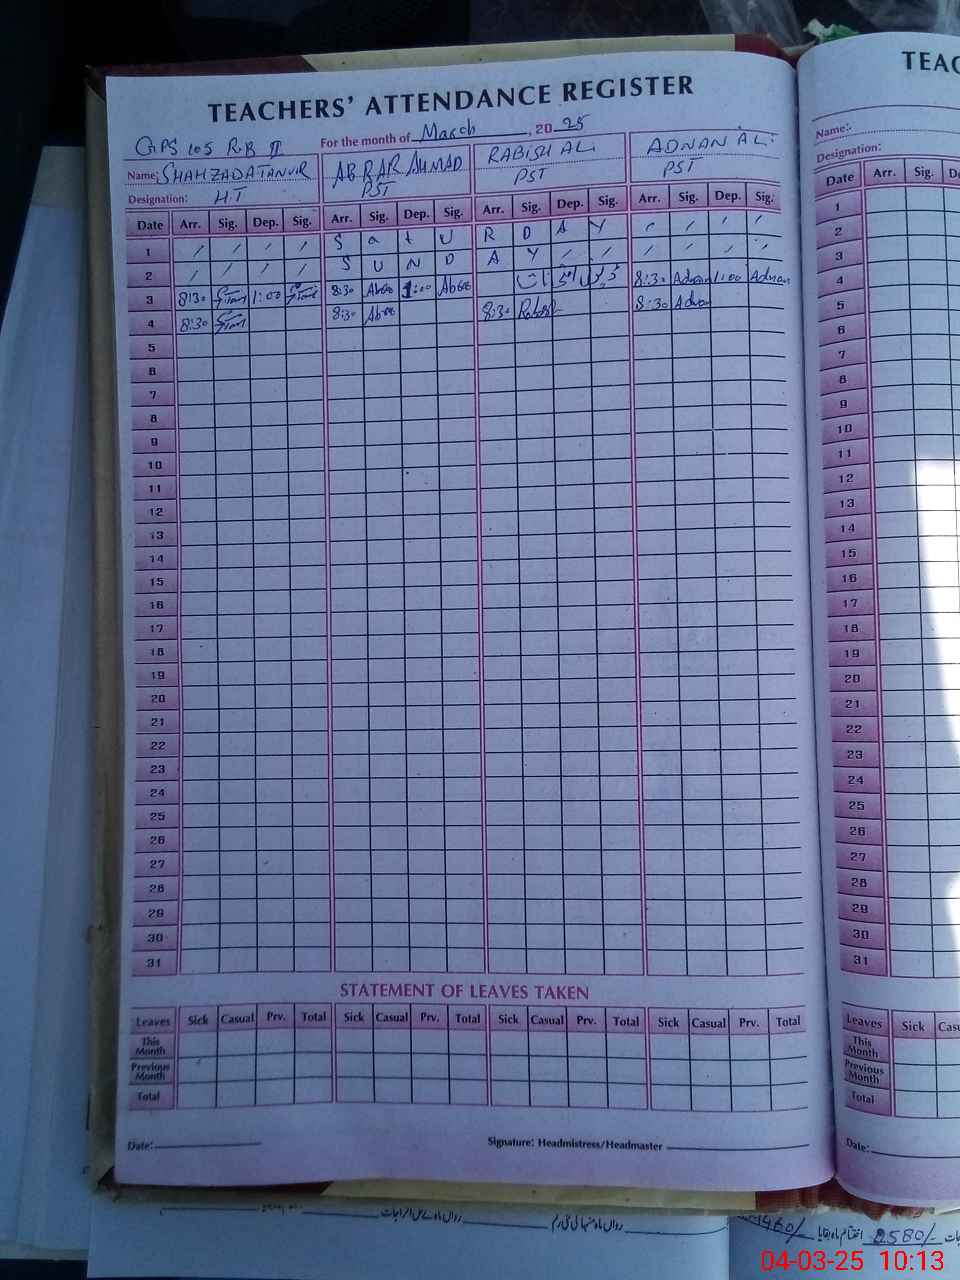 TEACHERS' ATTENDANCE REGISTER
GPS 105 R.B II For the month of March, 2025
Name: SHAHZADA TANVIR ABRAR AHMAD RABISH ALI ADNAN ALI
Designation: HT PST PST PST
Date Arr. Sig. Dep. Sig. Arr. Sig. Dep. Sig. Arr. Sig. Dep. Sig. Arr. Sig. Dep. Sig.
1 S a t U R D A Y
2 S U N D A Y
3 8:30 1:00 8:30 1:00 8:30 Adnan 1:00 Adnan
4 8:30 8:30 8:30 8:30 Adnan
5
6
7
8
9
10
11
12
13
14
15
16
17
18
19
20
21
22
23
24
25
26
27
28
29
30
31
STATEMENT OF LEAVES TAKEN
Leaves Sick Casual Prv. Total Sick Casual Prv. Total Sick Casual Prv. Total Sick Casual Prv. Total
This Month
Previous Month
Total
Date: Signature: Headmistress/Headmaster
TEAC
Name:
Designation:
Date Arr. Sig. De
1
2
3
4
5
6
7
8
9
10
11
12
13
14
15
16
17
18
19
20
21
22
23
24
25
26
27
28
29
30
31
Leaves Sick Casu
This Month
Previous Month
Total
Date:
2580/-
04-03-25 10:13